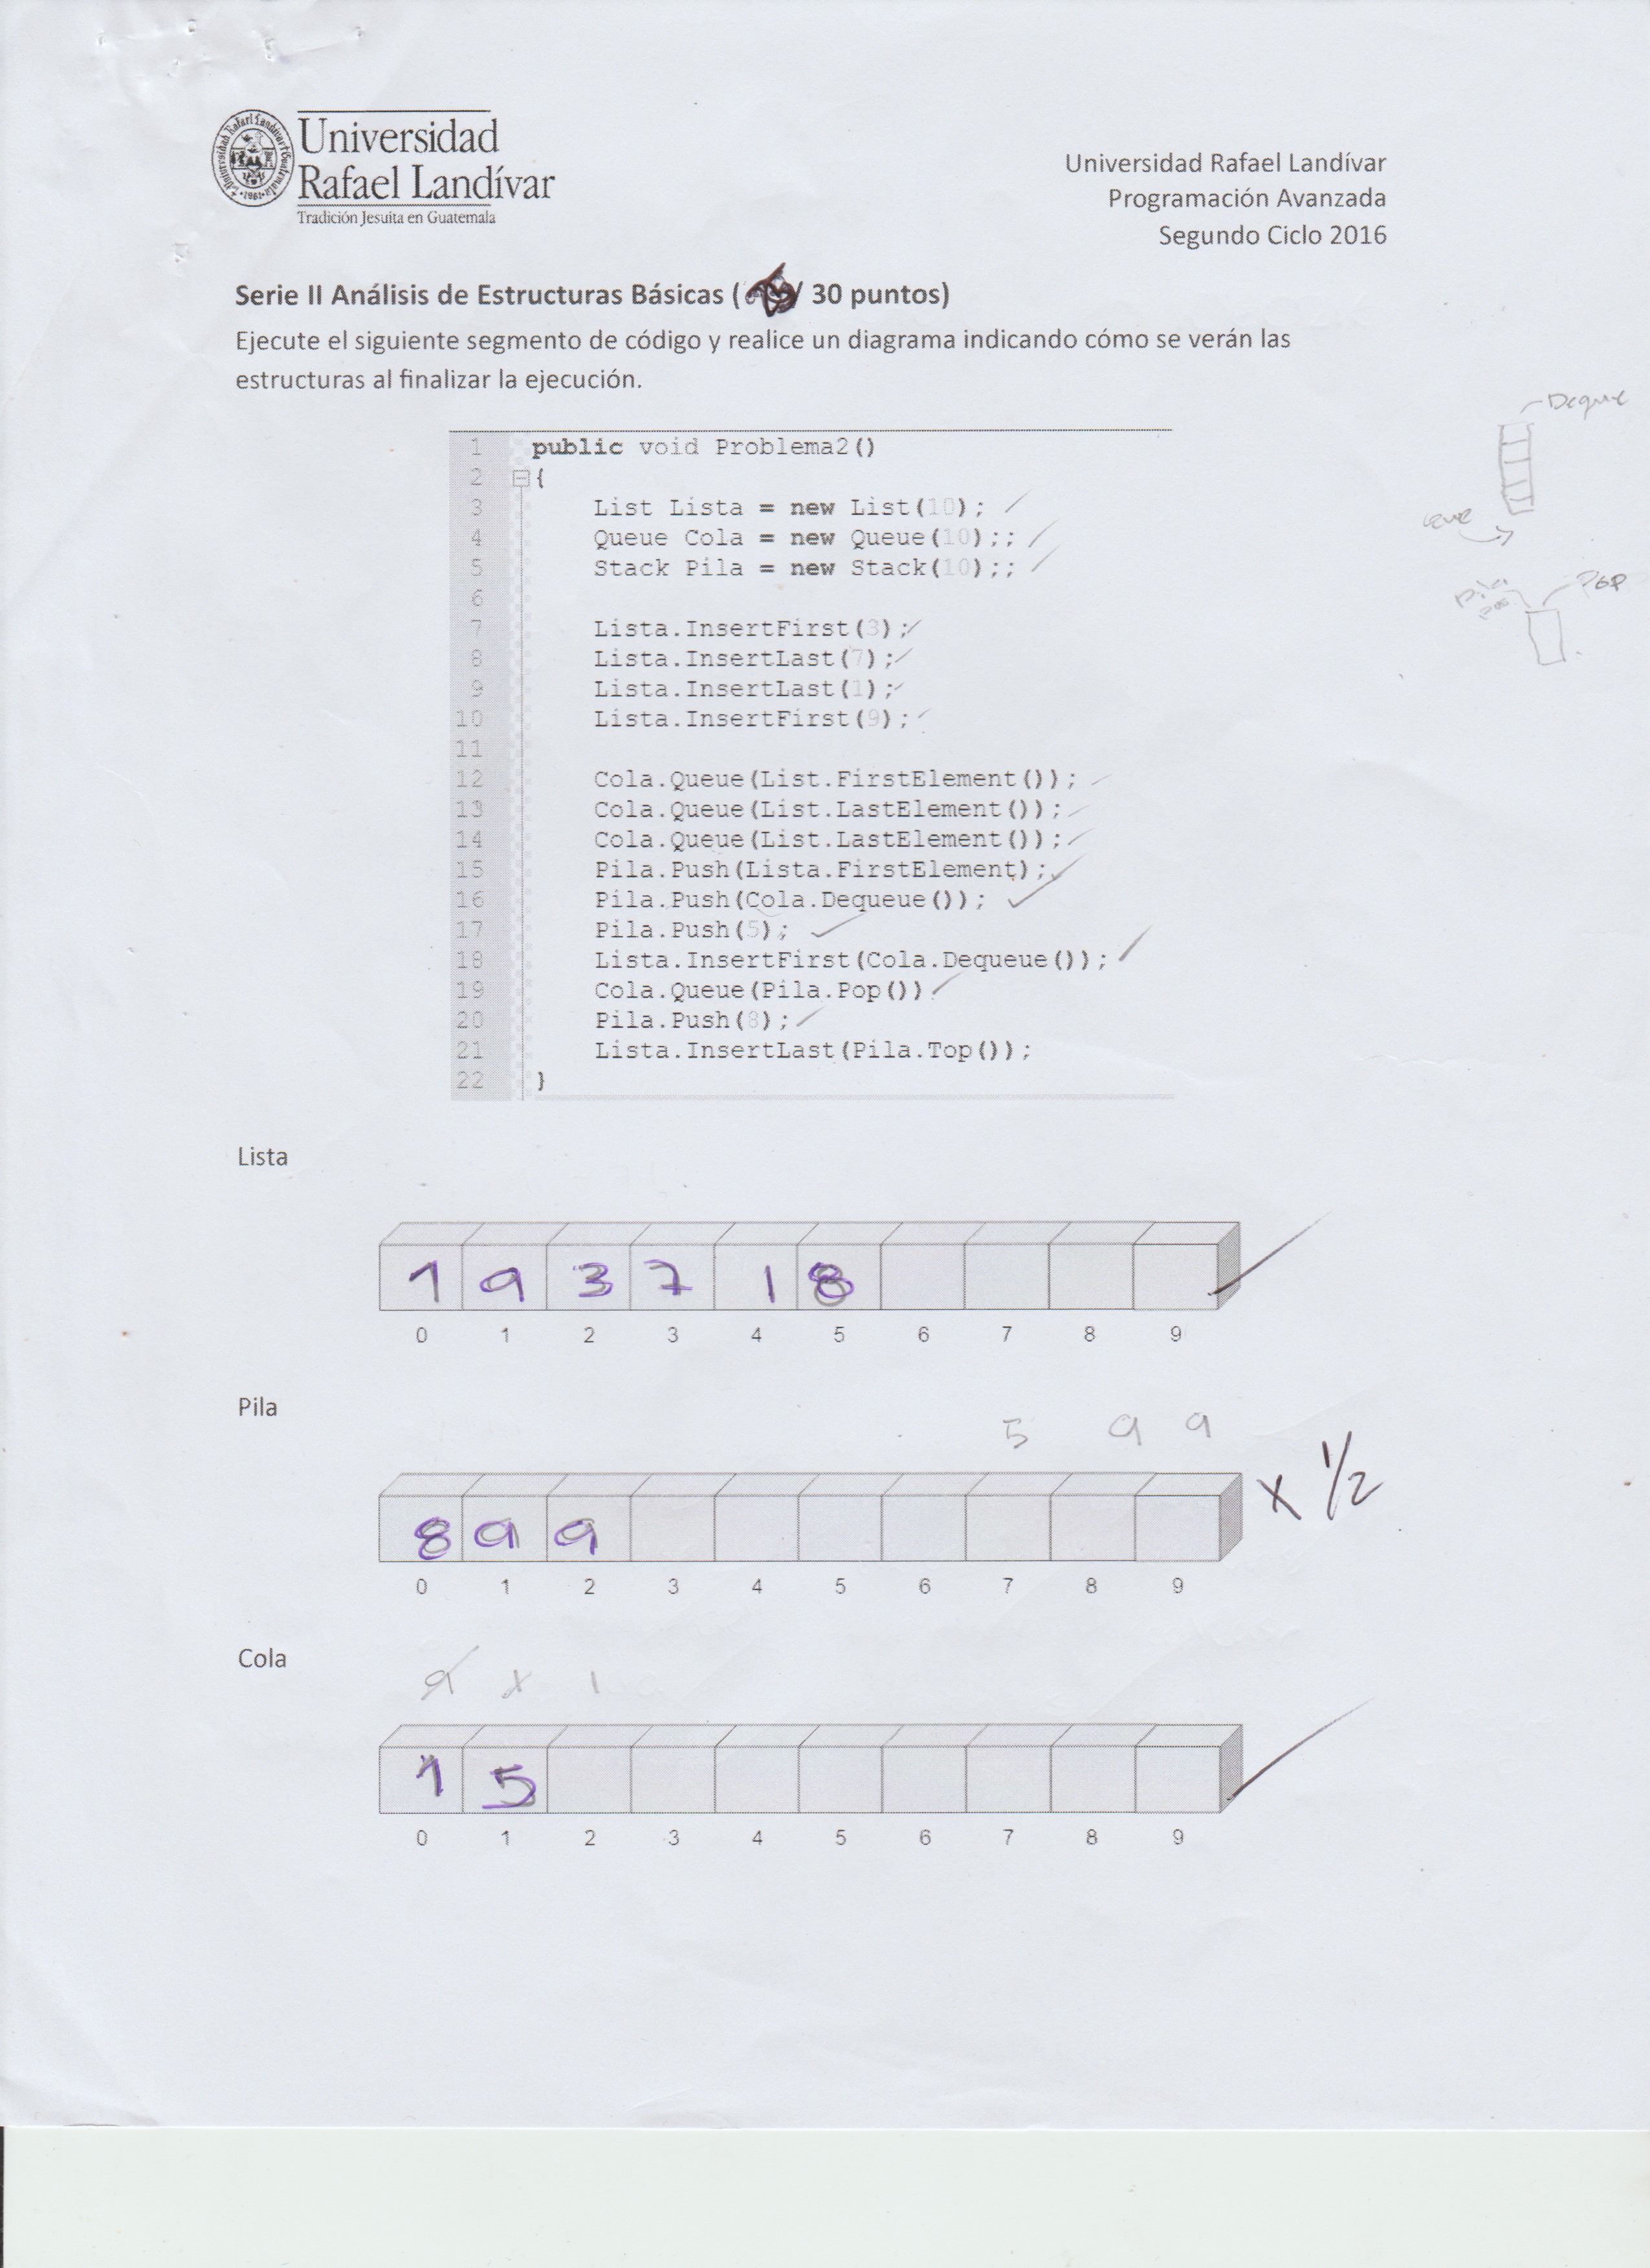 Universidad
Rafael Landívar
Tradición Jesuita en Guatemala
Universidad Rafael Landívar
Programación Avanzada
Segundo Ciclo 2016
Serie II Análisis de Estructuras Básicas ( / 30 puntos)
Ejecute el siguiente segmento de código y realice un diagrama indicando cómo se verán las
estructuras al finalizar la ejecución.
Deque
Pop
1 public void Problema2()
2 {
3 List Lista = new List(10);
4 Queue Cola = new Queue(10);;
5 Stack Pila = new Stack(10);;
6
7 Lista.InsertFirst(3);
8 Lista.InsertLast(7);
9 Lista.InsertLast(1);
10 Lista.InsertFirst(9);
11
12 Cola.Queue(List.FirstElement());
13 Cola.Queue(List.LastElement());
14 Cola.Queue(List.LastElement());
15 Pila.Push(Lista.FirstElement);
16 Pila.Push(Cola.Dequeue());
17 Pila.Push(5);
18 Lista.InsertFirst(Cola.Dequeue());
19 Cola.Queue(Pila.Pop())
20 Pila.Push(8);
21 Lista.InsertLast(Pila.Top());
22 }
Lista
1 9 3 7 1 8
0 1 2 3 4 5 6 7 8 9
Pila
5 9 9
x 1/2
8 9 9
0 1 2 3 4 5 6 7 8 9
Cola
9 1 1
1 5
0 1 2 3 4 5 6 7 8 9